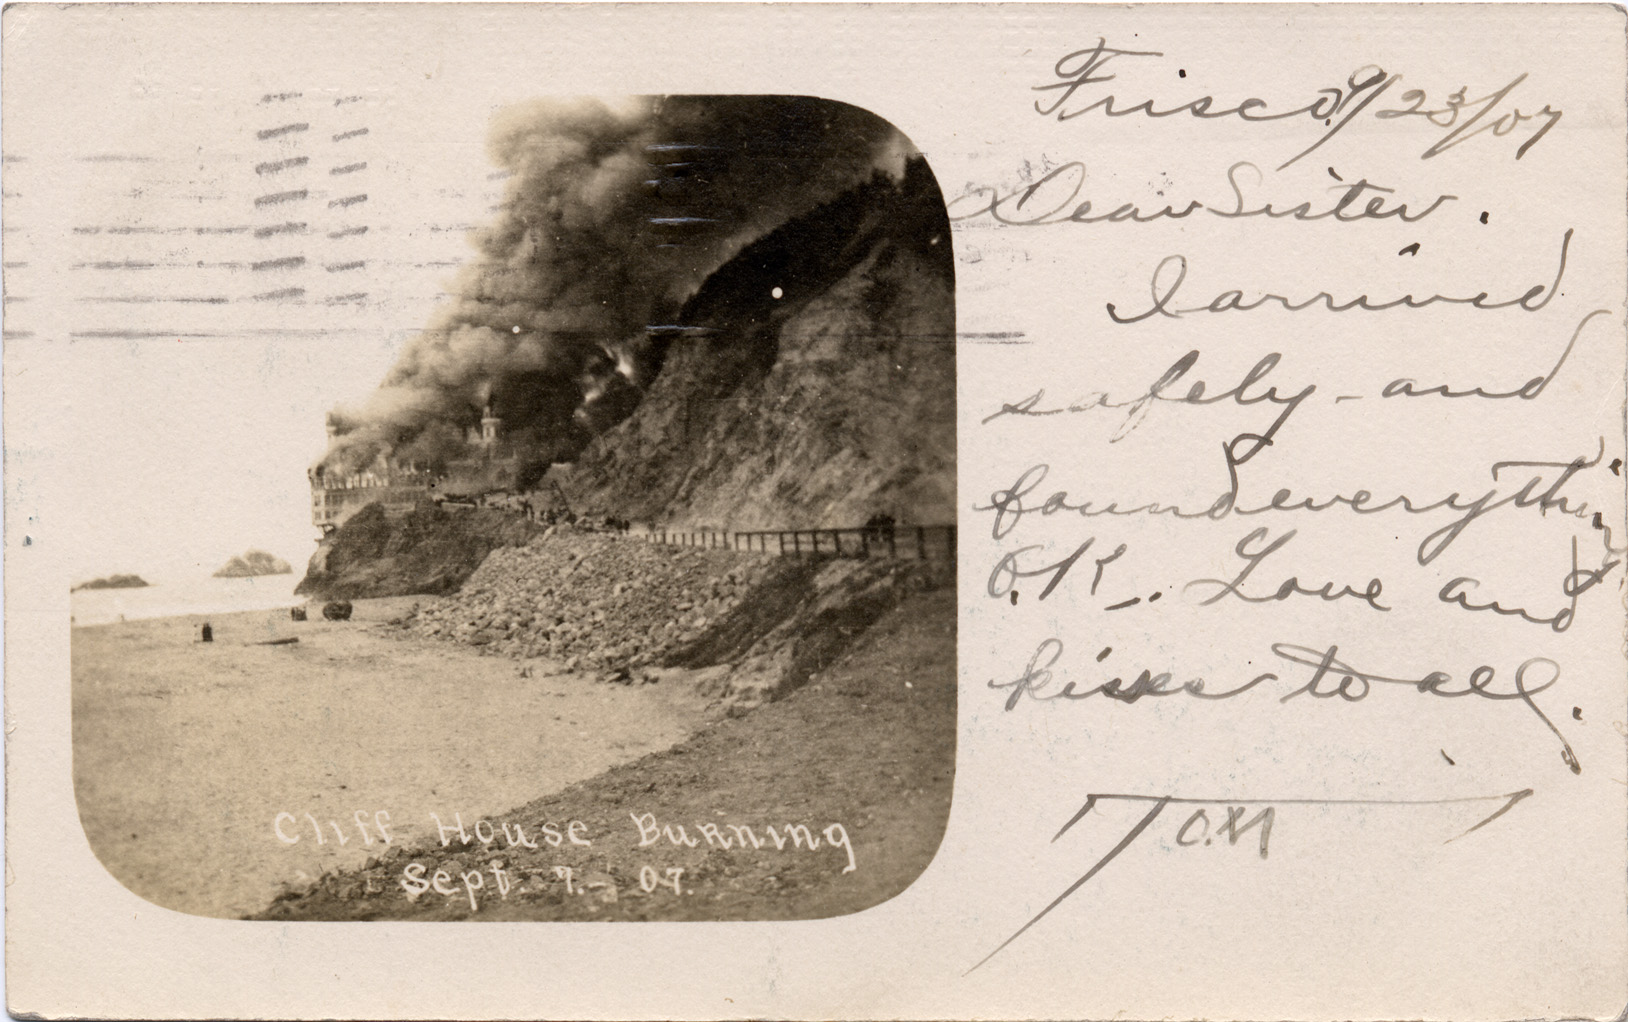 Cliff House Burning
Sept. 7.- 07.
Frisco. 9/23/07
Dear Sister.
I arrived
safely - and
found everything
O.K. Love and
kisses to all.
Tom